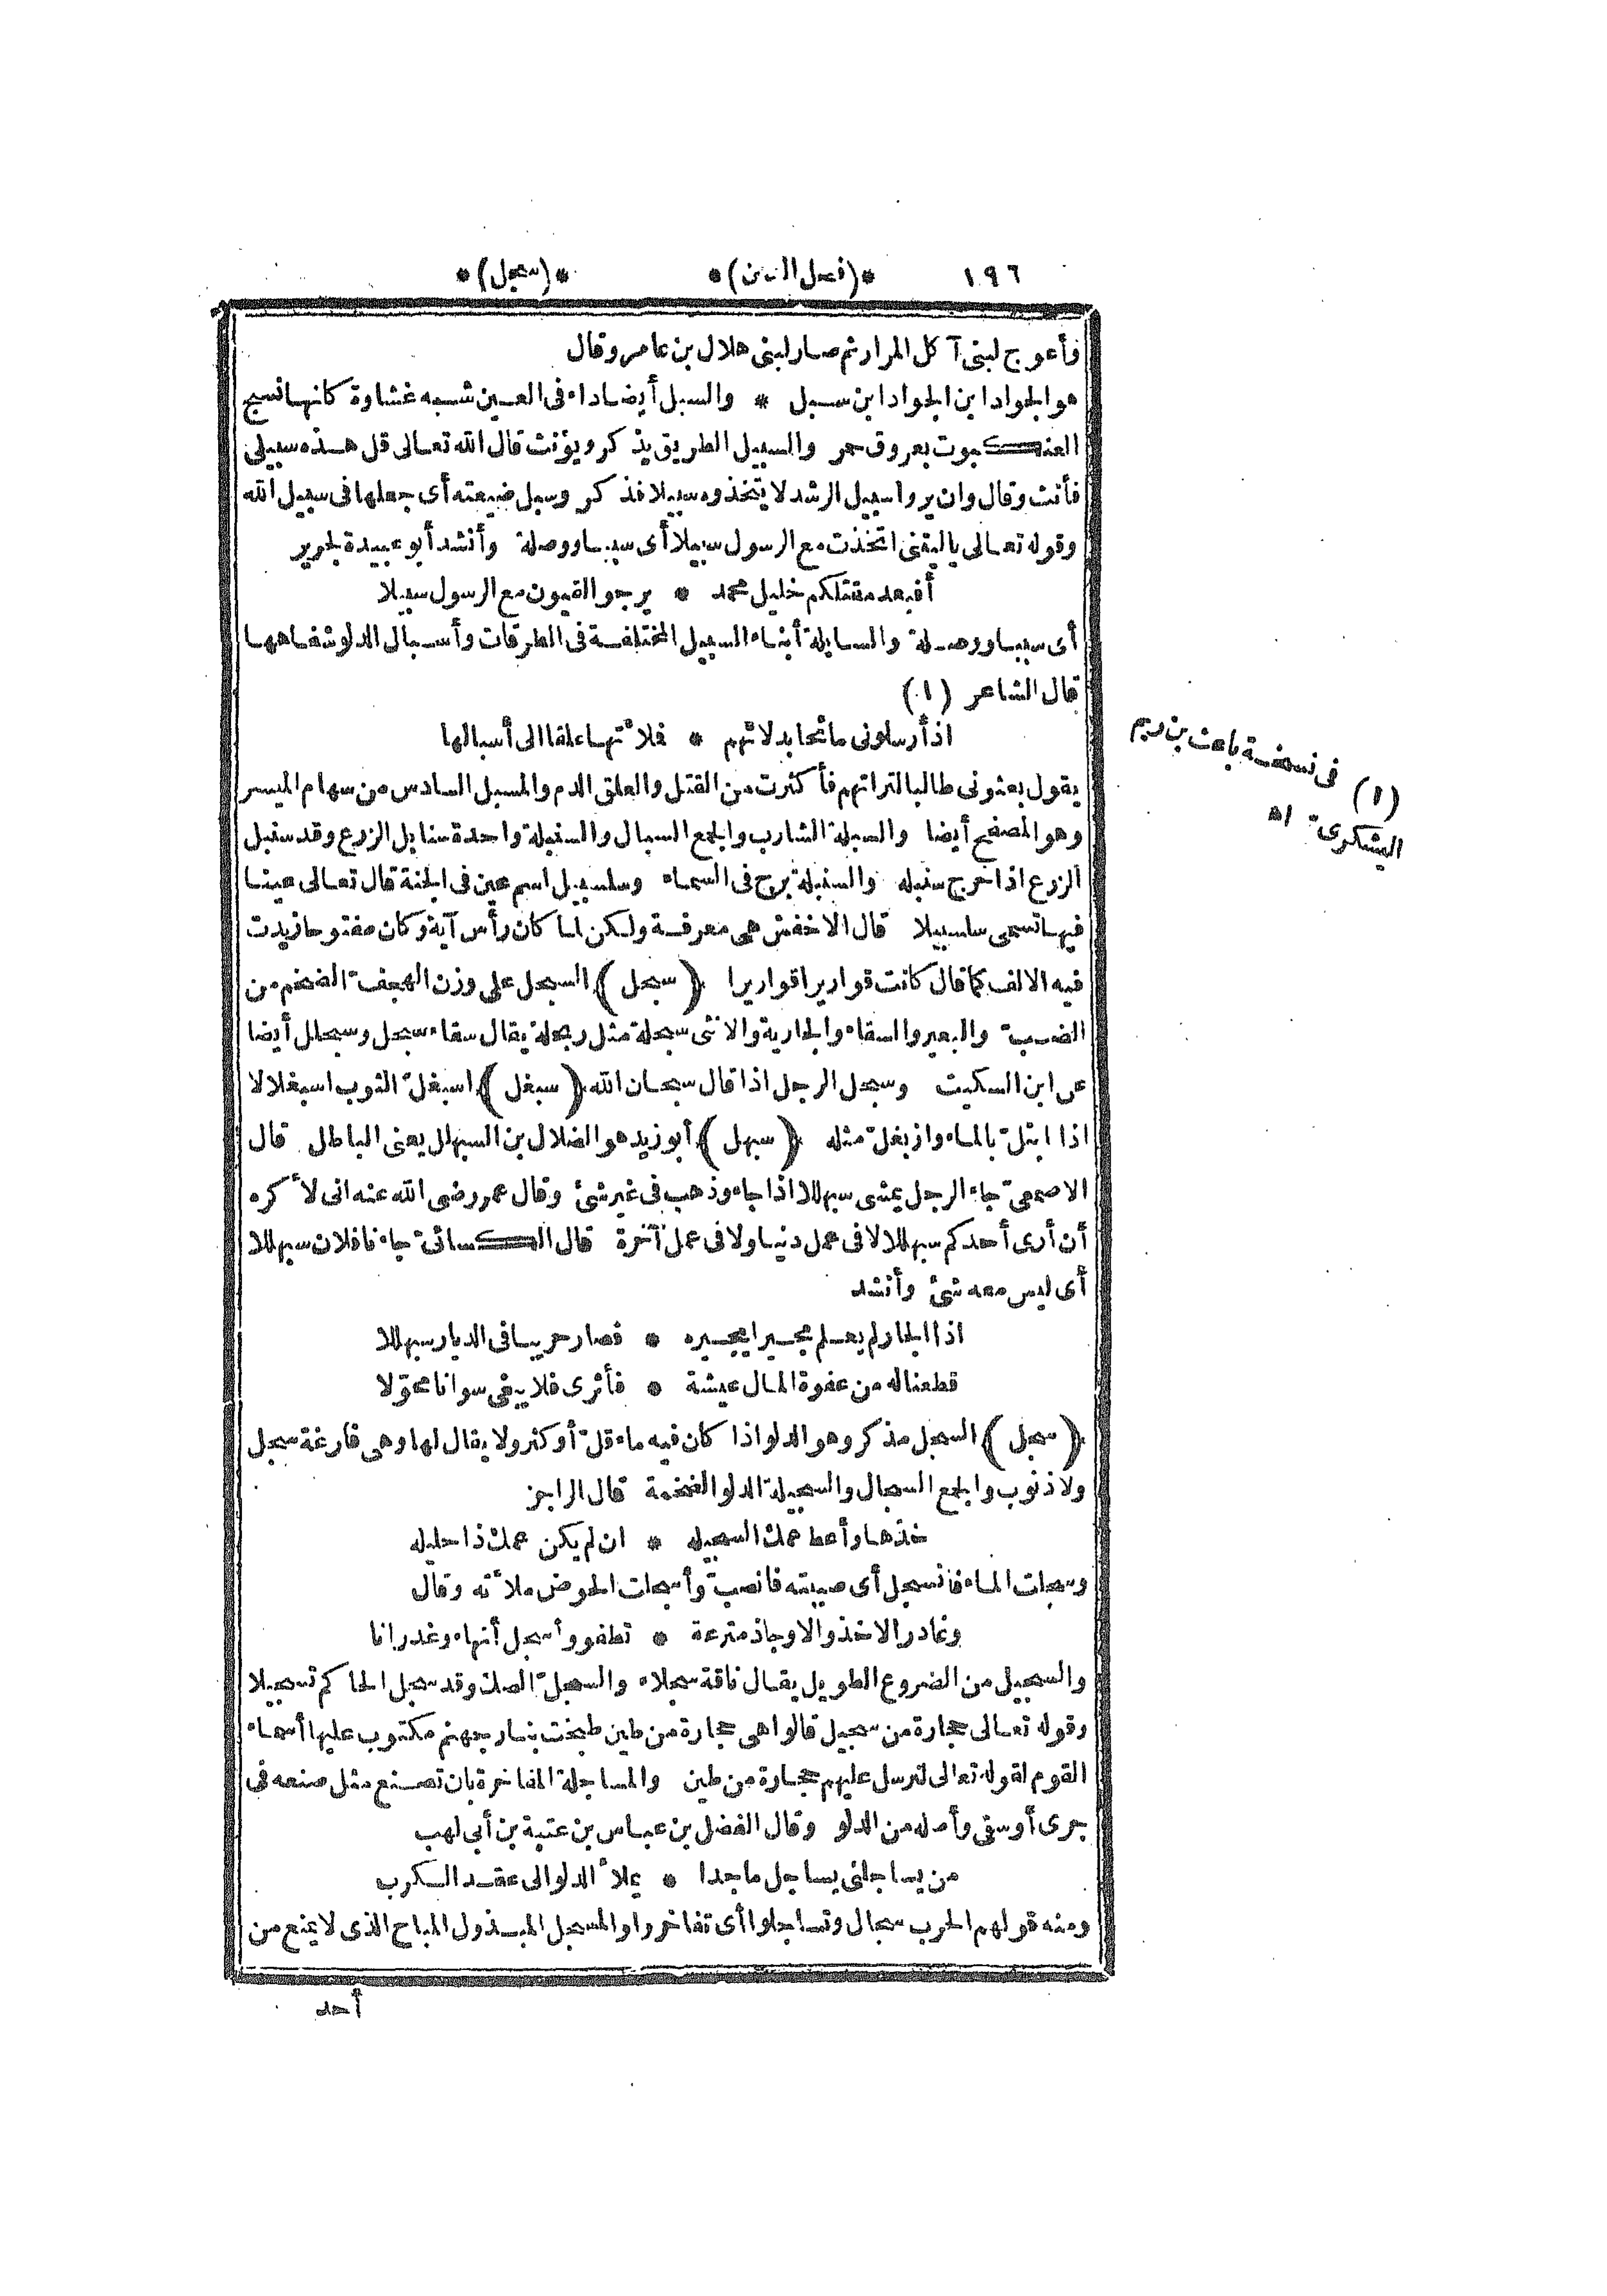 ١٩٦ *(فصل السين)* *(سجل)*
وأعوج لبنى آكل المرار ثم صار لبنى هلال بن عامر وقال
هو الجواد ابن الجواد ابن سبل * والسبل أيضا داء فى العين شبه غشاوة كانها نسج
العنكبوت بعروق حمر والسبيل الطريق يذكر ويؤنث قال الله تعالى قل هذه سبيلى
فأنث وقال وان يروا سبيل الرشد لا يتخذوه سبيلا فذكر وسبل ضيعته أى جعلها فى سبيل الله
وقوله تعالى ياليتنى اتخذت مع الرسول سبيلا أى سببا ووصلة وأنشد أبو عبيدة لجرير
أفبعد مقتلكم خليل محمد * يرجو القيون مع الرسول سبيلا
أى سببا ووصلة والسابلة أبناء السبيل المختلفة فى الطرقات وأسبال الدلو شفاهها
قال الشاعر (١)
اذ أرسلونى مائحا بدلائهم * فملأتها علقا الى أسبالها
يقول بعثونى طالبا لتراتهم فأكثرت من القتل والعلق الدم والمسبل السادس من سهام الميسر
وهو المصفح أيضا والسبلة الشارب والجمع السبال والسنبلة واحدة سنابل الزرع وقد سنبل
الزرع اذا خرج سنبله والسنبلة برج فى السماء وسلسبيل اسم عين فى الجنة قال تعالى عينا
فيها تسمى سلسبيلا قال الاخفش هى معرفة ولكن لما كان رأس آية وكان مفتوحا زيدت
فيه الالف كما قال كانت قواريرا قواريرا (سبحل) السبحل على وزن الهجفّ الضخم من
الضبّ والبعير والسقاء والجارية والانثى سبحلة مثل ربحلة يقال سقاء سبحل وسبحلل أيضا
عن ابن السكيت وسبحل الرجل اذا قال سبحان الله (سبغل) اسبغلّ الثوب اسبغلالا
اذا ابتلّ بالماء وازبغلّ مثله (سبهل) أبو زيد هو الضلال بن السبهلل يعنى الباطل قال
الاصمعىّ جاء الرجل يمشى سبهللا اذا جاء وذهب فى غير شئ وقال عمر رضى الله عنه انى لأكره
أن أرى أحدكم سبهللا لا فى عمل دنيا ولا فى عمل آخرة قال الكسائىّ جاءنا فلان سبهللا
أى ليس معه شئ وأنشد
اذا الجار لم يعلم مجيرا يجيره * فصار حريبا فى الديار سبهللا
قطعنا له من عفوة المال عيشة * فأثرى فلا يبغى سوانا محوّلا
(سجل) السجل مذكر وهو الدلو اذا كان فيه ماء قلّ أو كثر ولا يقال لها وهى فارغة سجل
ولا ذنوب والجمع السجال والسجيلة الدلو الضخمة قال الراجز
خذها وأعط عمك السجيله * ان لم يكن عمك ذا حليله
وسجلت الماء فانسجل أى صببته فانصبّ وأسجلت الحوض ملأته وقال
وغادر الاخذ والاوجاذ مترعة * تطفو وأسجل أنهاء وغدرانا
والسجيل من الضروع الطويل يقال ناقة سجلاء والسجلّ الصك وقد سجل الحاكم تسجيلا
وقوله تعالى حجارة من سجيل قالوا هى حجارة من طين طبخت بنار جهنم مكتوب عليها أسماء
القوم لقوله تعالى لنرسل عليهم حجارة من طين والمساجلة المفاخرة بان تصنع مثل صنعه فى
جرى أو سقى وأصله من الدلو وقال الفضل بن عباس بن عتبة بن أبى لهب
من يساجلنى يساجل ماجدا * يملأ الدلو الى عقد الكرب
ومنه قولهم الحرب سجال وتساجلوا أى تفاخروا والمسجل المبذول المباح الذى لا يمنع من
أحد
(١) فى نسخة باعث بن صريم
اليشكرىّ اه